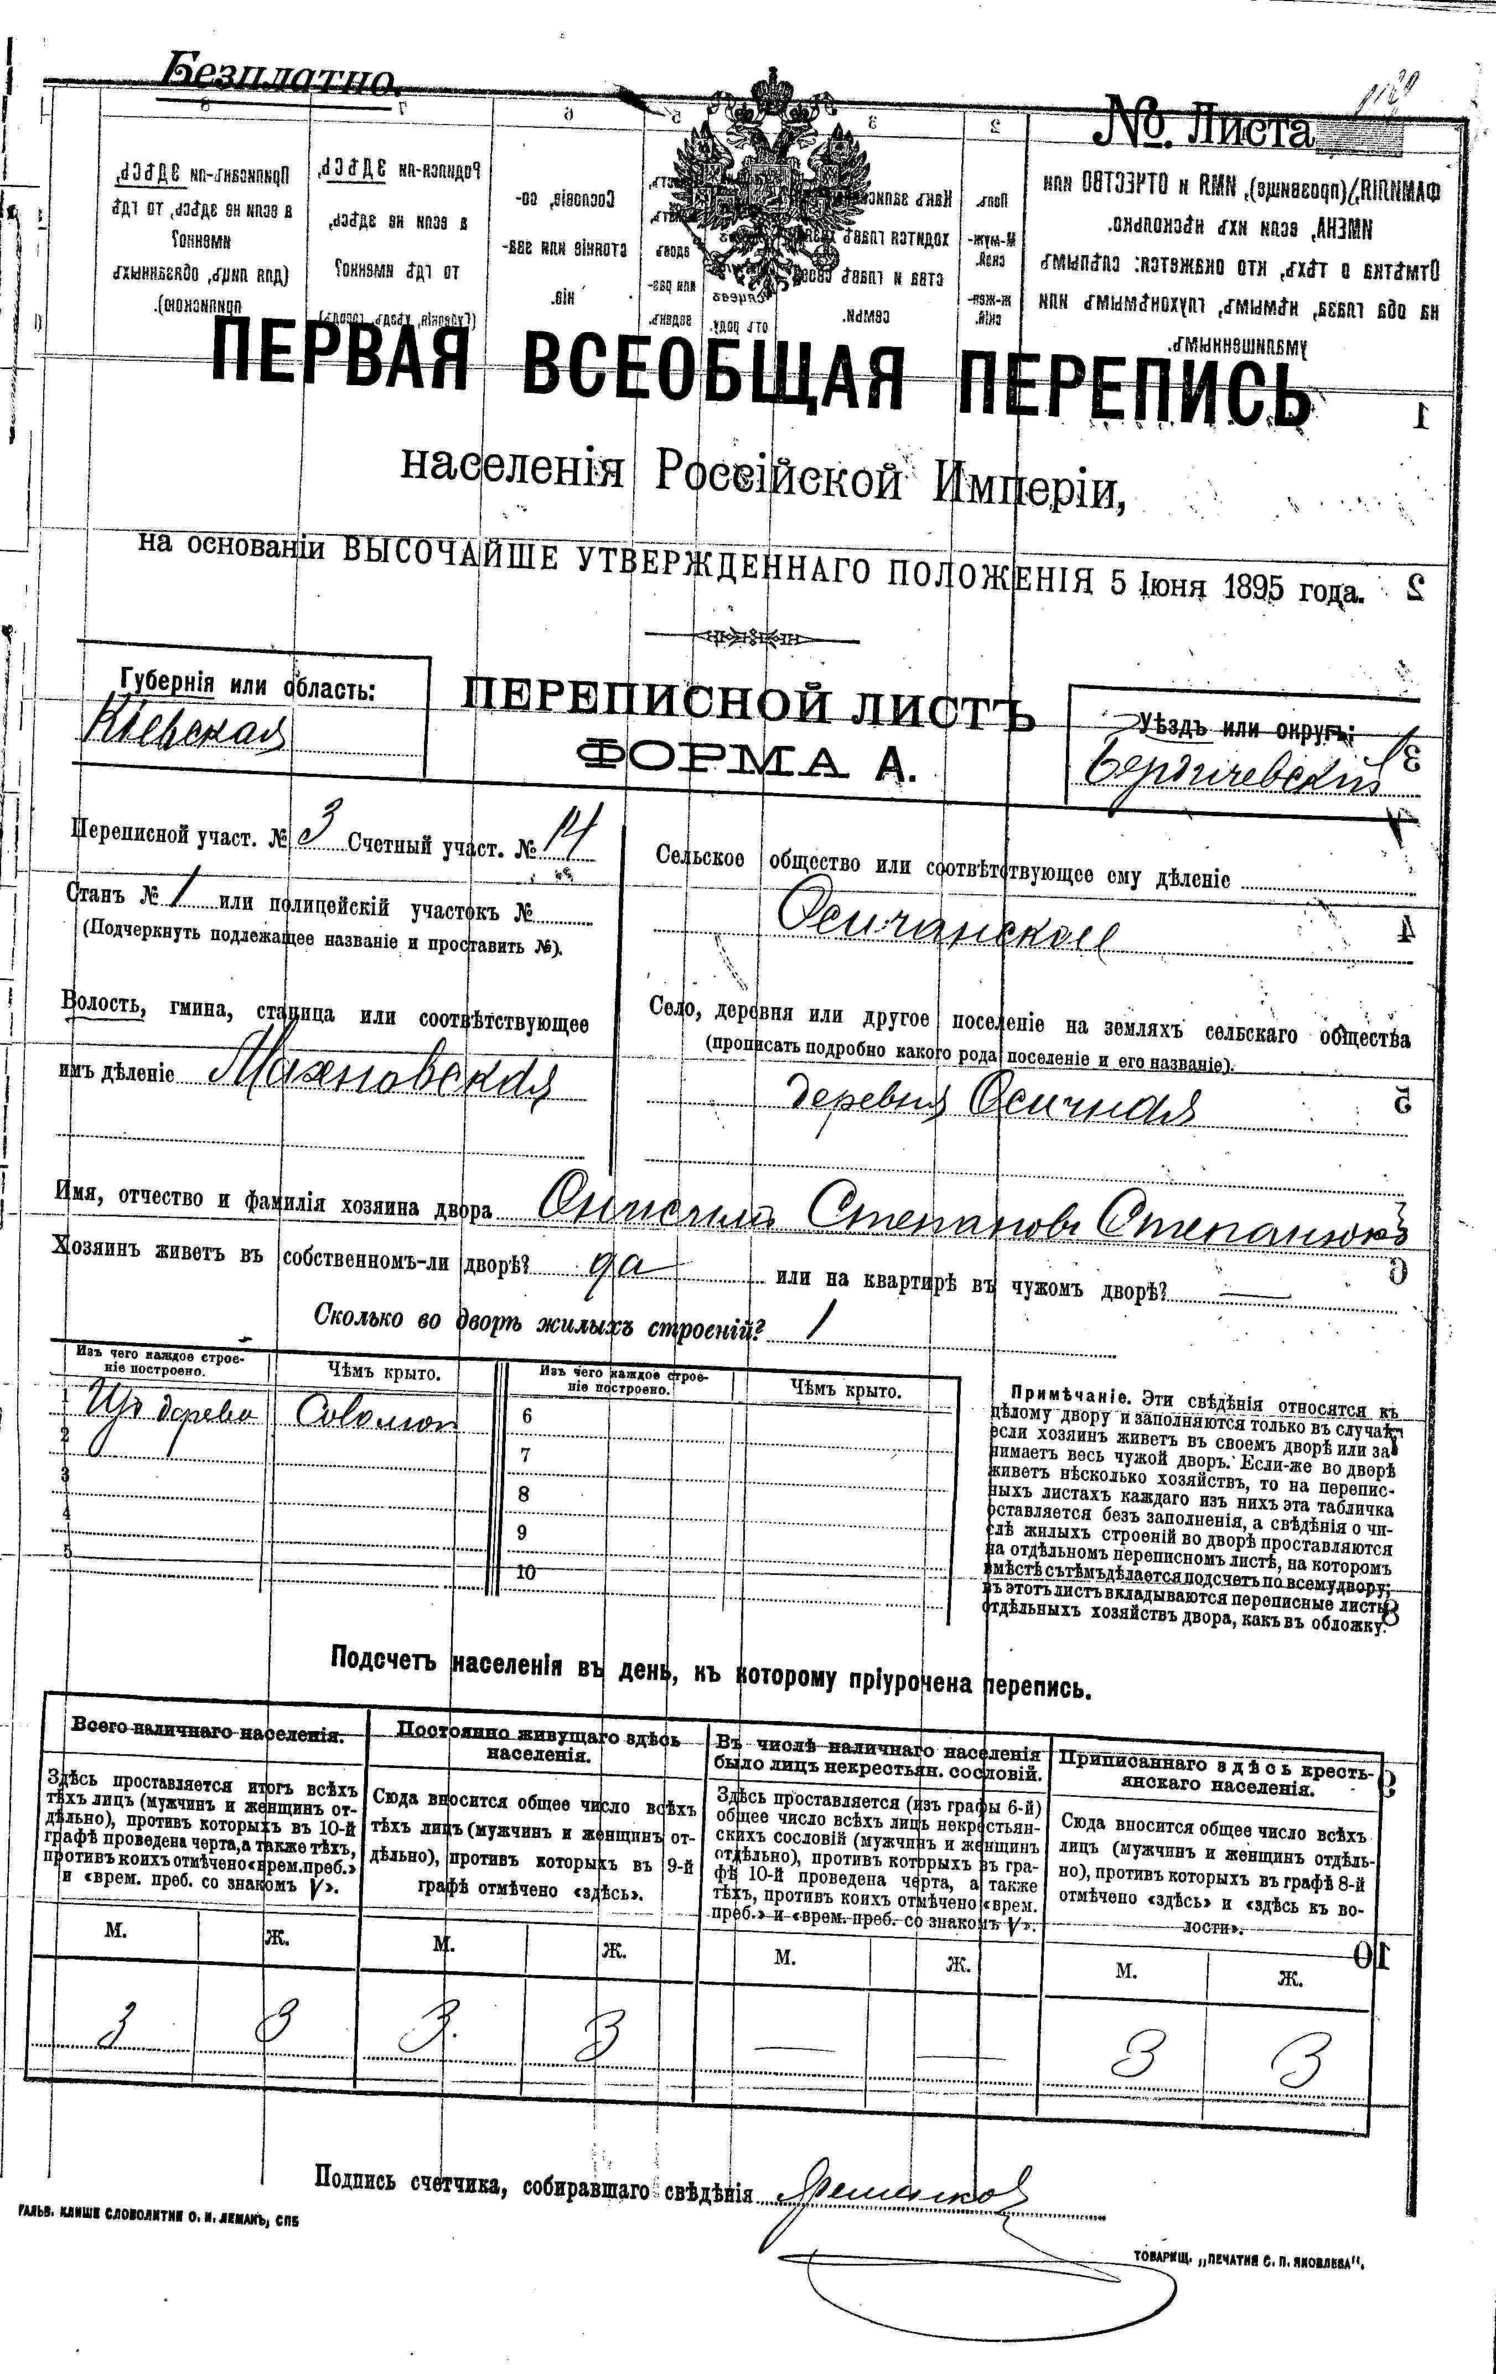 Безплатно.
№. Листа
ПЕРВАЯ ВСЕОБЩАЯ ПЕРЕПИСЬ
населенія Россійской Имперіи,
на основаніи ВЫСОЧАЙШЕ УТВЕРЖДЕННАГО ПОЛОЖЕНІЯ 5 Іюня 1895 года.
Губернія или область:
Кіевская
ПЕРЕПИСНОЙ ЛИСТЪ
ФОРМА А.
Уѣздъ или округъ:
Бердичевскій
Переписной участ. № 3 Счетный участ. № 14
Станъ № 1 или полицейскій участокъ №
(Подчеркнуть подлежащее названіе и проставить №).
Волость, гмина, станица или соотвѣтствующее
имъ дѣленіе Махновская
Сельское общество или соотвѣтствующее ему дѣленіе
Осичанское
Село, деревня или другое поселеніе на земляхъ сельскаго общества
(прописать подробно какого рода поселеніе и его названіе).
деревня Осичная
Имя, отчество и фамилія хозяина двора Онисимъ Степановъ Степанюкъ
Хозяинъ живетъ въ собственномъ-ли дворѣ? да или на квартирѣ въ чужомъ дворѣ? —
Сколько во дворѣ жилыхъ строеній? 1
Изъ чего каждое строе-
ніе построено.
Чѣмъ крыто.
Изъ чего каждое строе-
ніе построено.
Чѣмъ крыто.
1 Изъ дерева Соломой 6
2 7
3 8
4 9
5 10
Примѣчаніе. Эти свѣдѣнія относятся къ
цѣлому двору и заполняются только въ случаѣ,
если хозяинъ живетъ въ своемъ дворѣ или за-
нимаетъ весь чужой дворъ. Если-же во дворѣ
живетъ нѣсколько хозяйствъ, то на перепис-
ныхъ листахъ каждаго изъ нихъ эта табличка
оставляется безъ заполненія, а свѣдѣнія о чи-
слѣ жилыхъ строеній во дворѣ проставляются
на отдѣльномъ переписномъ листѣ, на которомъ
вмѣстѣ съ тѣмъ дѣлается подсчетъ по всему двору;
въ этотъ листъ вкладываются переписные листы
отдѣльныхъ хозяйствъ двора, какъ въ обложку.
Подсчетъ населенія въ день, къ которому пріурочена перепись.
Всего наличнаго населенія.
Здѣсь проставляется итогъ всѣхъ
тѣхъ лицъ (мужчинъ и женщинъ от-
дѣльно), противъ которыхъ въ 10-й
графѣ проведена черта, а также тѣхъ,
противъ коихъ отмѣчено «врем. преб.»
и «врем. преб. со знакомъ V».
М. Ж.
3 3
Постоянно живущаго здѣсь
населенія.
Сюда вносится общее число всѣхъ
тѣхъ лицъ (мужчинъ и женщинъ от-
дѣльно), противъ которыхъ въ 9-й
графѣ отмѣчено «здѣсь».
М. Ж.
3. 3
Въ числѣ наличнаго населенія
было лицъ некрестьян. сословій.
Здѣсь проставляется (изъ графы 6-й)
общее число всѣхъ лицъ некрестьян-
скихъ сословій (мужчинъ и женщинъ
отдѣльно), противъ которыхъ въ гра-
фѣ 10-й проведена черта, а также
тѣхъ, противъ коихъ отмѣчено «врем.
преб.» и «врем. преб. со знакомъ V».
М. Ж.
— —
Приписаннаго здѣсь кресть-
янскаго населенія.
Сюда вносится общее число всѣхъ
лицъ (мужчинъ и женщинъ отдѣль-
но), противъ которыхъ въ графѣ 8-й
отмѣчено «здѣсь» и «здѣсь къ во-
лости».
М. Ж.
3 3
Подпись счетчика, собиравшаго свѣдѣнія
ГАЛЬВ. КЛИШЕ СЛОВОЛИТНИ О. И. ЛЕМАНЪ, СПБ
ТОВАРИЩ. „ПЕЧАТНЯ С. П. ЯКОВЛЕВА".